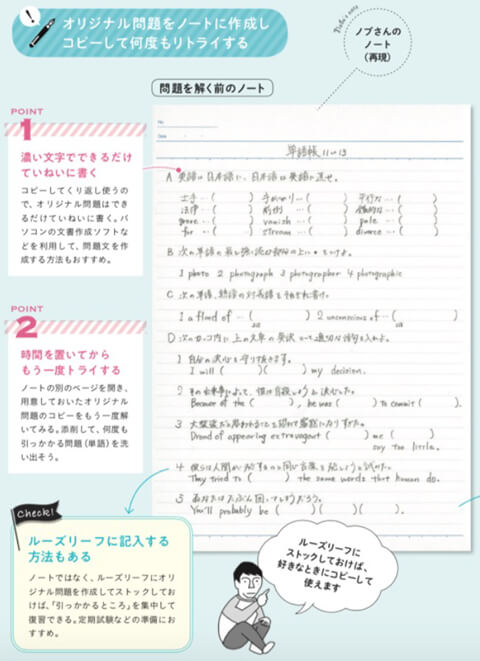 オリジナル問題をノートに作成し
コピーして何度もリトライする
Nobu's note
ノブさんの
ノート
(再現)
問題を解く前のノート
POINT
1
濃い文字でできるだけ
ていねいに書く
コピーしてくり返し使うの
で、オリジナル問題はでき
るだけていねいに書く。パ
ソコンの文書作成ソフトな
どを利用して、問題文を作
成する方法もおすすめ。
POINT
2
時間を置いてから
もう一度トライする
ノートの別のページを開き、
用意しておいたオリジナル
問題のコピーをもう一度解
いてみる。添削して、何度も
引っかかる問題(単語)を洗
い出そう。
Check!
ルーズリーフに記入する
方法もある
ノートではなく、ルーズリーフにオリ
ジナル問題を作成してストックしてお
けば、「引っかかるところ」を集中して
復習できる。定期試験などの準備にお
すすめ。
No.
Date
単語帳 11〜13
A 英語は日本語に、日本語は英語に直せ。
法律…( )
vanish …( )
pale …( )
for …( )
stream …( )
divorce …( )
B 次の単語の最も強く読む部分の上に・をつけよ。
1 photo 2 photograph 3 photographer 4 photographic
C 次の単語、熟語の対義語を
1 a flood of …( ) 2 unconscious of …( )
D 次のカッコ内に上の文章の英訳として適切な語句を入れよ。
1 自分の決心を守り抜きます。
I will ( )( ) my decision.
2 その出来事によって、彼は自殺しようと決心した。
Because of the ( ), he was ( ) to commit ( ).
3
Dread of appearing extravagant ( ) me ( )
say too little.
4 彼らは人間が
They tried to ( ) the same words that human do.
5 あなたはたぶん困ってしまうだろう。
You'll probably be ( )( )( ).
ルーズリーフに
ストックしておけば、
好きなときにコピーして
使えます